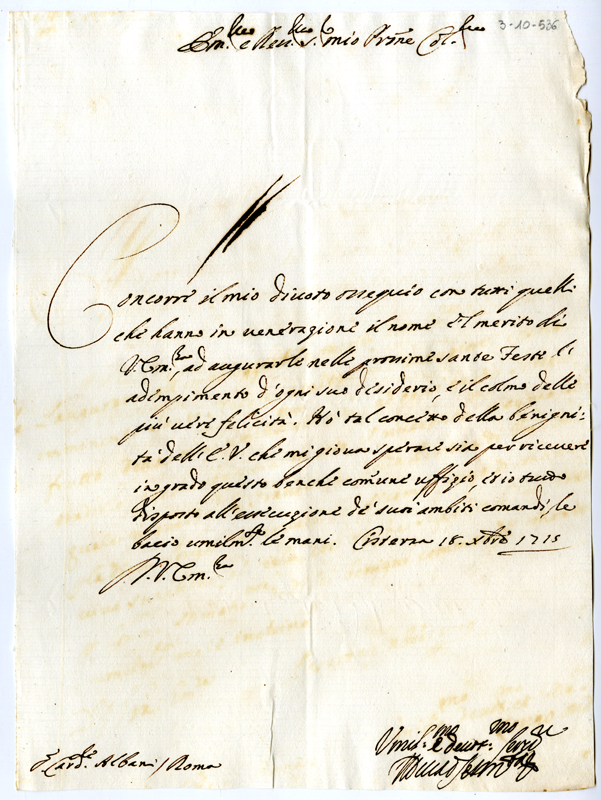 3-10-536
Em.mo e Rev.mo S.r mio Prõne Col.mo
Concorre il mio divoto ossequio con tutti quelli
che hanno in venerazione il nome e'l merito di
V. Em.za, ad augurarle nelle prossime sante Feste l'
adempimento d'ogni suo desiderio, e il colmo delle
più vere felicità. Hò tal concetto della benigni=
tà dell'E. V. che mi giova sperare sia per ricevere
in grado questo benche comune uffizio, et io tutto
disposto all'essecuzione de' suoi ambiti comandi, le
bacio umilm.te le mani. Cisterna 18. Xbre 1715
V. Em.za
Card.le Albani / Roma
Umil.mo e devot.mo